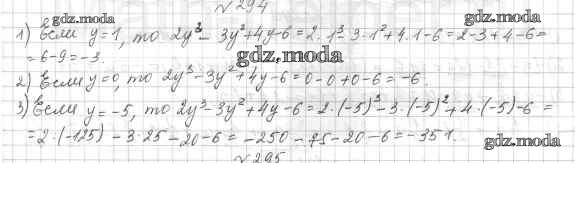 №294
gdz.moda
1) Если y=1, то 2y³-3y²+4y-6=2·1³-3·1²+4·1-6=2-3+4-6=
=6-9=-3.
gdz.moda
2) Если y=0, то 2y³-3y²+4y-6=0-0+0-6=-6.
3) Если y=-5, то 2y³-3y²+4y-6=2·(-5)³-3·(-5)²+4·(-5)-6=
=2·(-125)-3·25-20-6=-250-75-20-6=-351.
gdz.moda
№295